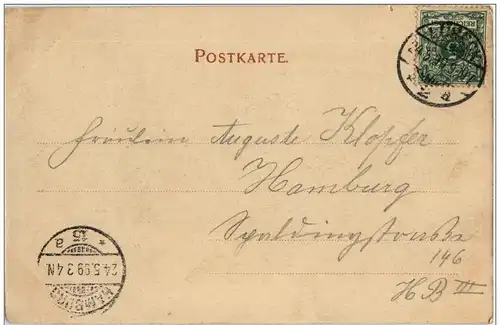 POSTKARTE.
Fräulein Auguste Klopfer
Hamburg
Spaldingstraße
146
H B III
HAMBURG
24.5.99 3-4N
* 15 a
LÜBECK
REICHSPOST